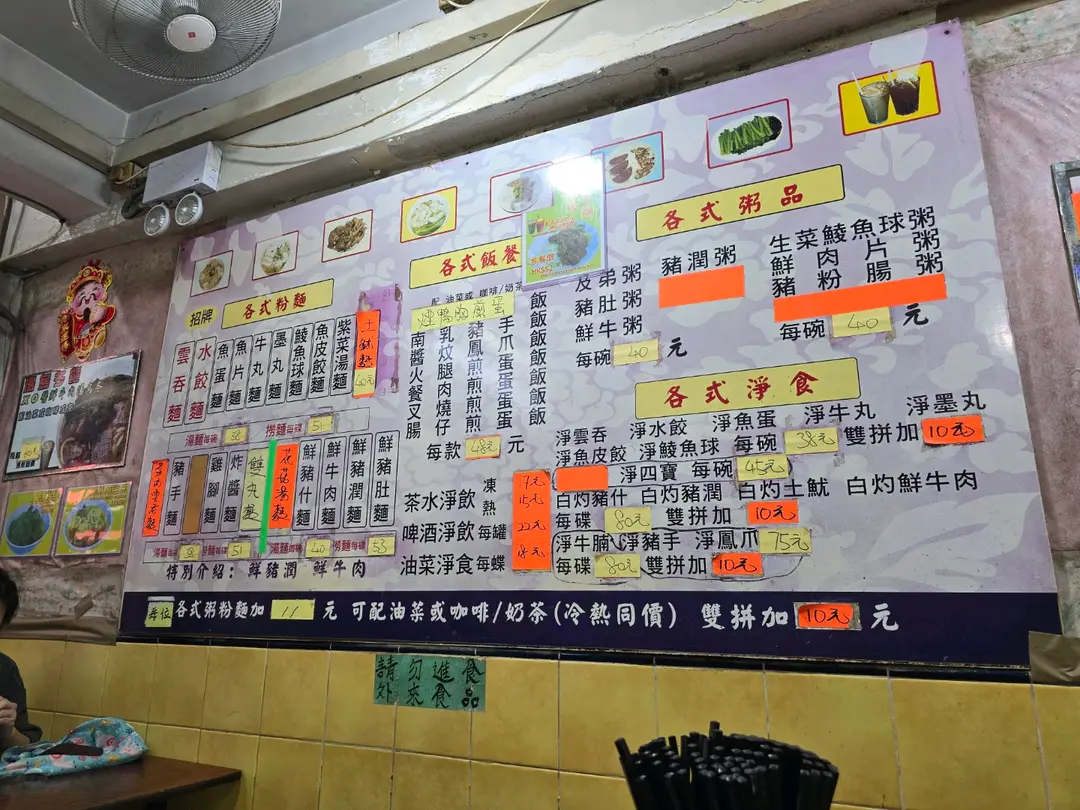 各式粉麵
招牌
雲吞麵
水餃麵
魚蛋麵
魚片麵
牛丸麵
墨丸麵
鯪魚球麵
魚皮餃麵
紫菜湯麵
土魷麵
湯麵每碗 38
撈麵每碟 51
豬手麵
雞腳麵
炸醬麵
雙丸麵
花菇湯麵
鮮豬什麵
鮮牛肉麵
鮮豬潤麵
鮮豬肚麵
湯麵每碗 38 撈麵每碟 51 湯麵每碗 40 撈麵每碟 53
特別介紹：鮮豬潤 鮮牛肉
各式飯餐
配 油菜或 咖啡/奶茶
南乳豬手飯
醬炆鳳爪飯
火腿煎蛋飯
餐肉煎蛋飯
叉燒煎蛋飯
腸仔煎蛋飯
每款 48元 元
茶水淨飲 凍 17元
熱 15元
啤酒淨飲 每罐 22元
油菜淨食 每蝶 18元
各式粥品
及弟粥 豬潤粥 生菜鯪魚球粥
豬肚粥 鮮肉片粥
鮮牛粥 豬粉腸粥
每碗 40 元 每碗 40 元
各式淨食
淨雲吞 淨水餃 淨魚蛋 淨牛丸 淨墨丸
淨魚皮餃 淨鯪魚球 每碗 38元 雙拼加 10元
淨四寶 每碗 45元
白灼豬什 白灼豬潤 白灼土魷 白灼鮮牛肉
每碟 80元 雙拼加 10元
淨牛腩 淨豬手 淨鳳爪 75元
每碟 80元 雙拼加 10元
每位 各式粥粉麵加 11 元 可配油菜或咖啡/奶茶(冷熱同價) 雙拼加 10元 元
請勿進食
外來食品